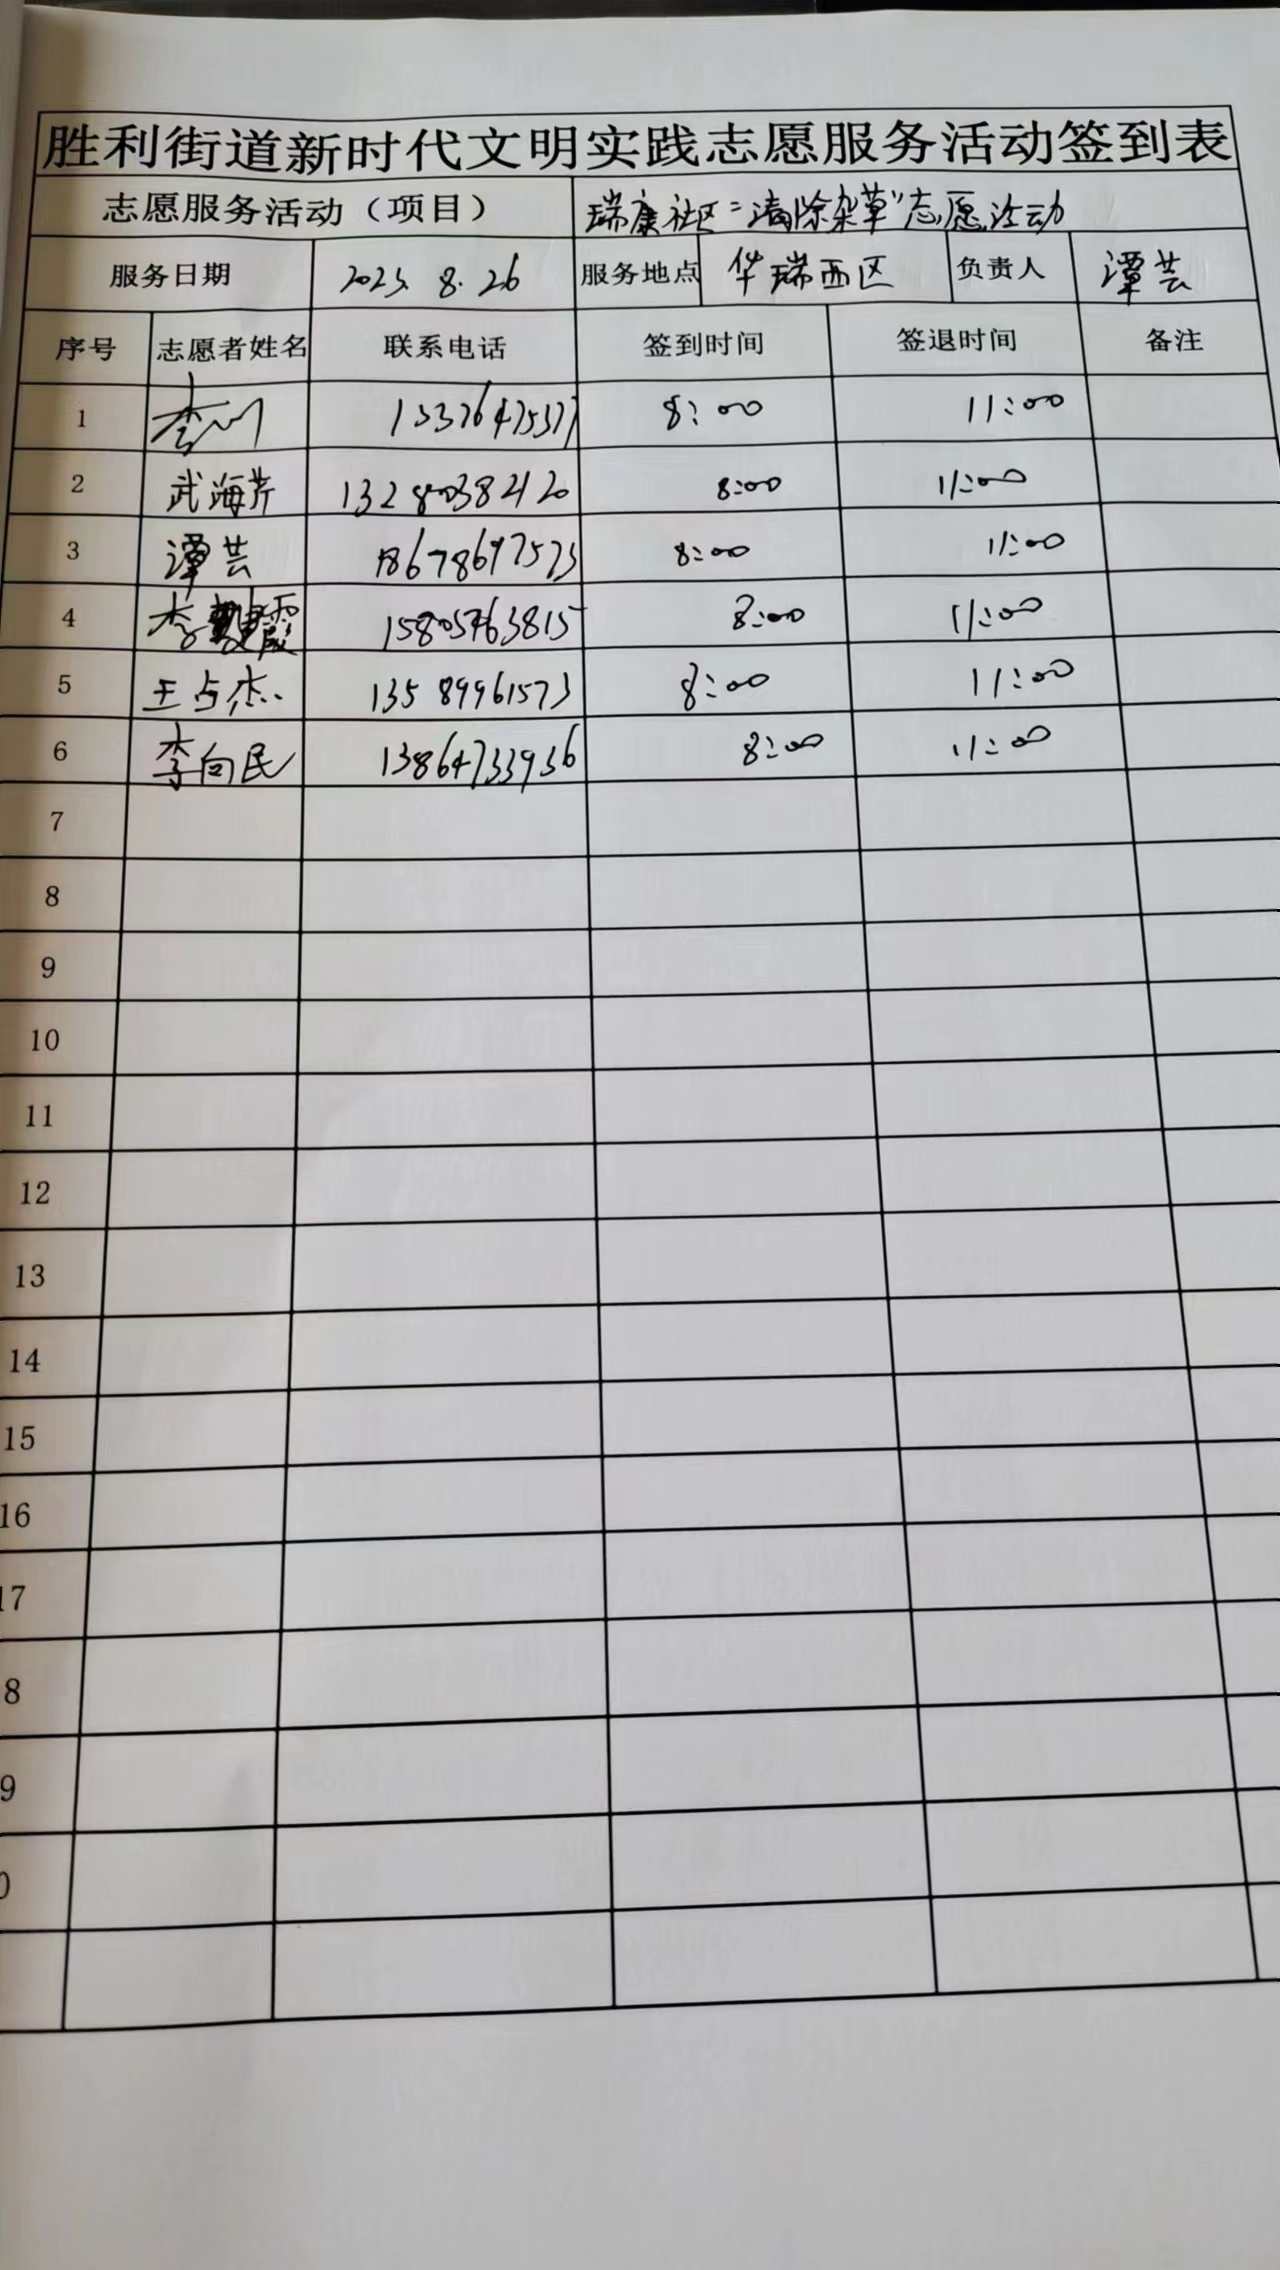 胜利街道新时代文明实践志愿服务活动签到表
志愿服务活动（项目） 瑞康社区"清除杂草"志愿活动
服务日期 2023.8.26 服务地点 华瑞西区 负责人 谭芸
序号 志愿者姓名 联系电话 签到时间 签退时间 备注
1 李川 8:00 11:00
2 武海芹 13280038420 8:00 11:00
3 谭芸 18678697573 8:00 11:00
4 李 霞 15805463815 8:00 11:00
5 王占杰 13589961573 8:00 11:00
6 李向民 13864733936 8:00 11:00
7
8
9
10
11
12
13
14
15
16
17
8
9
0